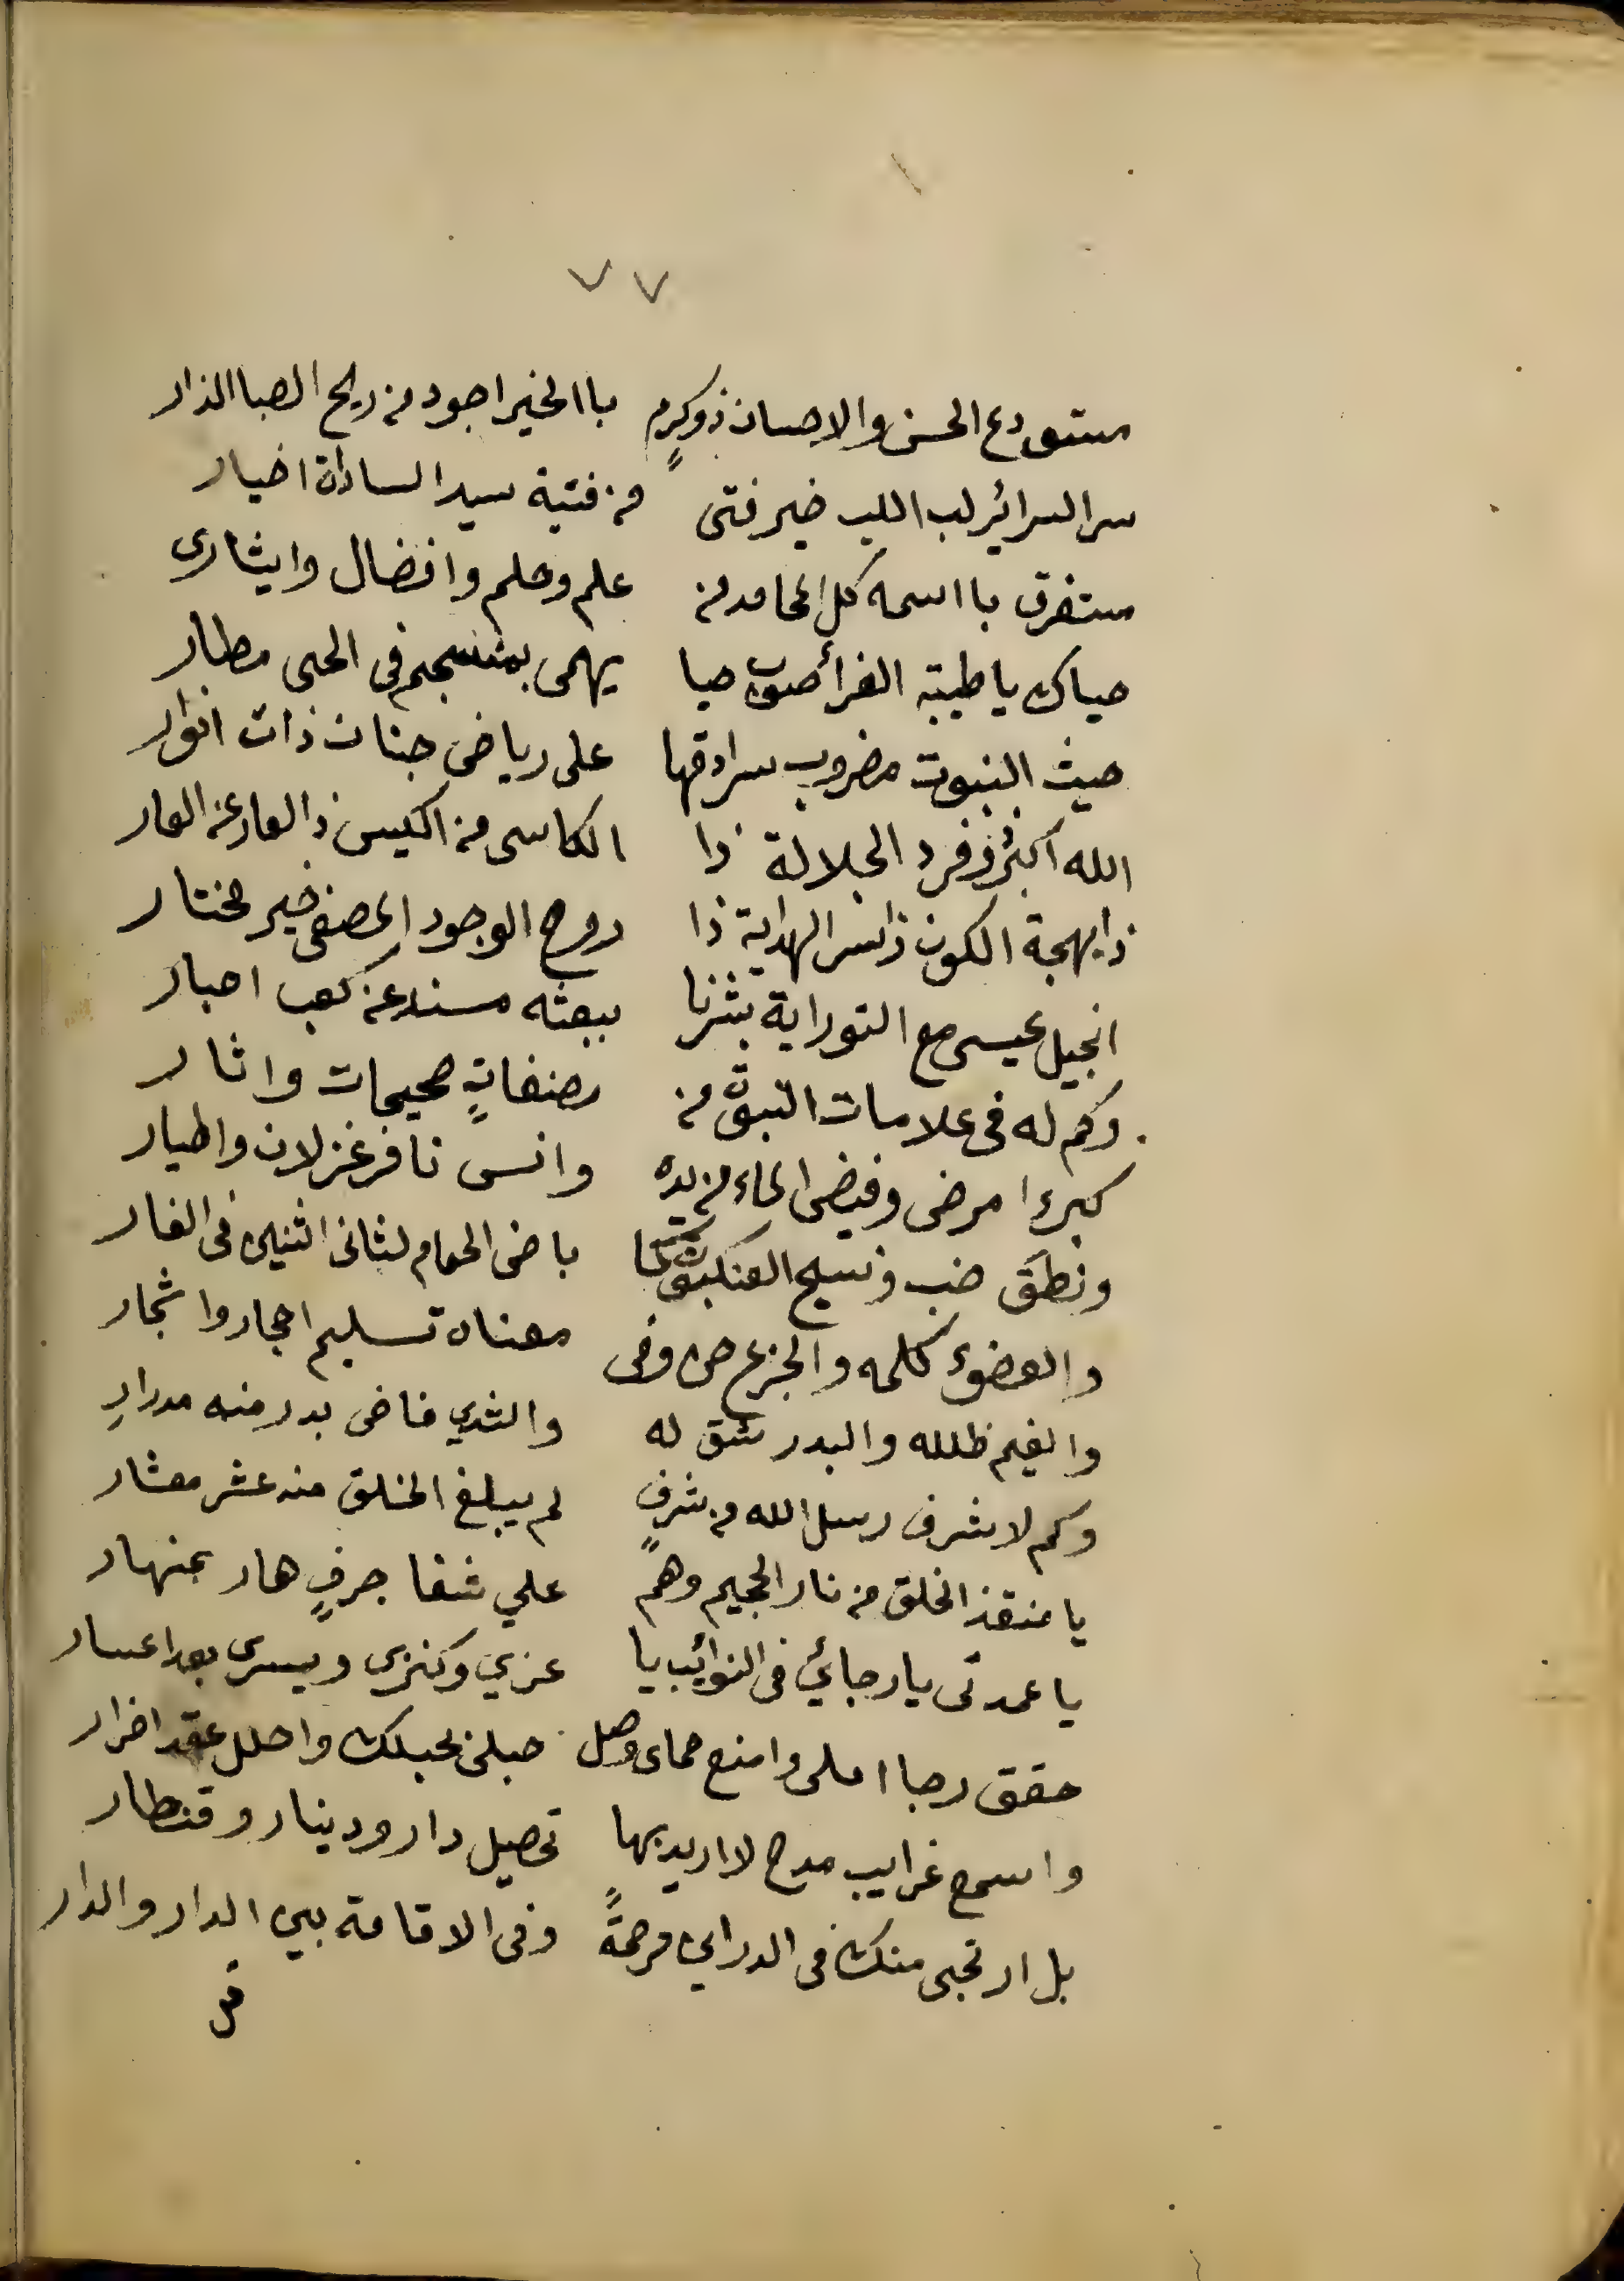 ٧٧
مستودع الحسن والاحسان ذو كرمٍ باالخير اجود من ريح الصبا الذار
سر السرائر لب اللب خير فتى من فتية سيد الساداة اخيار
مستغرق بااسمه كل المحامد من علم وحلم وافضال وايثارى
حياك ياطيبته الغرأ صوب حيا يهمى بمنسجم فى الحى مطار
حيث النبوت مضروب سرادقها على رياض جنات ذات انوار
الله اكبر ذو فرد الجلالة ذا الكاسى من الكيس ذا لعار عن العار
ذا بهجة الكون ذا سر الهداية ذا روح الوجود المصفى خير مختار
انجيل عيسى مع التوراية بشرنا ببعثه مسند عن كعب احبار
وكم له فى علامات النبوة من مصنفاتٍ صحيحات واثار
كبرء امرض وفيض الماء من يده وانس نافر غزلان واطيار
ونطق ضب ونسيج العنكبوت كما باض الحمام لثانى اثنين فى الغار
والعضوء كلمه والجزع حن وفى معناه تسليم احجار واشجار
والغيم ظلله والبدر شق له والثدي فاض بدر منه مدرارِ
وكم لا شرف رسل الله من شرفٍ لم يبلغ الخلق منه عشر معشار
يا منقذ الخلق من نار الجحيم وهمً علي شفا جرفٍ هار بمنهار
يا عمدتى يا رجائي فى النوائب يا عزي وكنزى ويسرى بعد اعسار
حقق رجا املى وامنع حماى وصل حبلى بحبلك واحلل عقد اضرار
واسمع غرايب مدح لا اريد بها تحصيل دار ودينار وقنطار
بل ارتجى منك فى الدراين مرحمةً وفى الاقامة بين الدار والدار